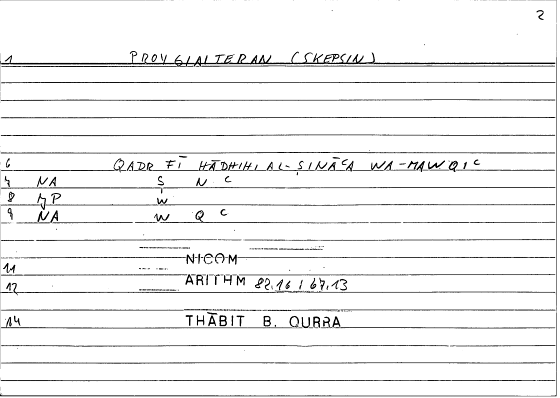 2
1 PROYGIAITERAN (SKEPSIN)
6 QADR FĪ HĀDHIHI AL-ṢINĀʿA WA-MAWQIʿ
7 NA Ṣ N ʿ
8 W
9 NA W Q ʿ
NICOM
11
12 ARITHM 82.16 / 67.13
14 THĀBIT B. QURRA